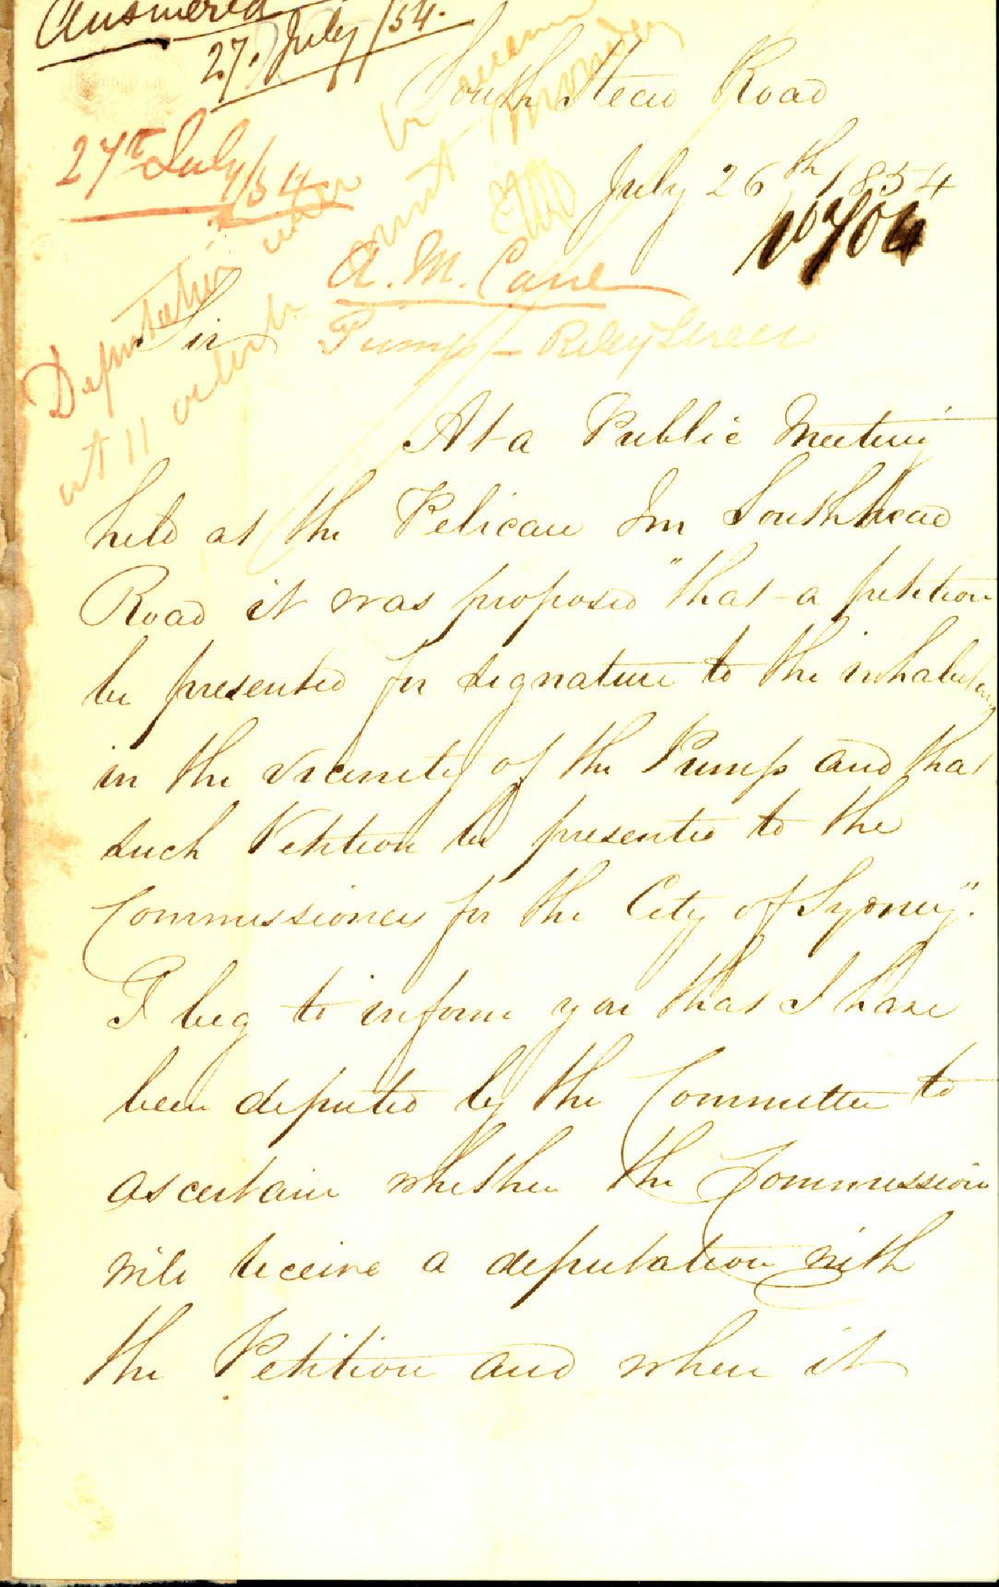 Answered
27. July /54.
South Head Road
27th July/54
July 26th 1854
10704
A. M. Cane
Sir
Pump - Riley Street
Deputation
at 11 oclock
At a Public Meeting
held at the Pelican Inn South head
Road it was proposed "that a petition
be presented for signature to the inhabitants
in the vicinity of the Pump and that
such Petition be presented to the
Commissioners for the City of Sydney".
I beg to inform you that I have
been deputed by the Committee to
ascertain whether the Commission
will receive a deputation with
the Petition and when it